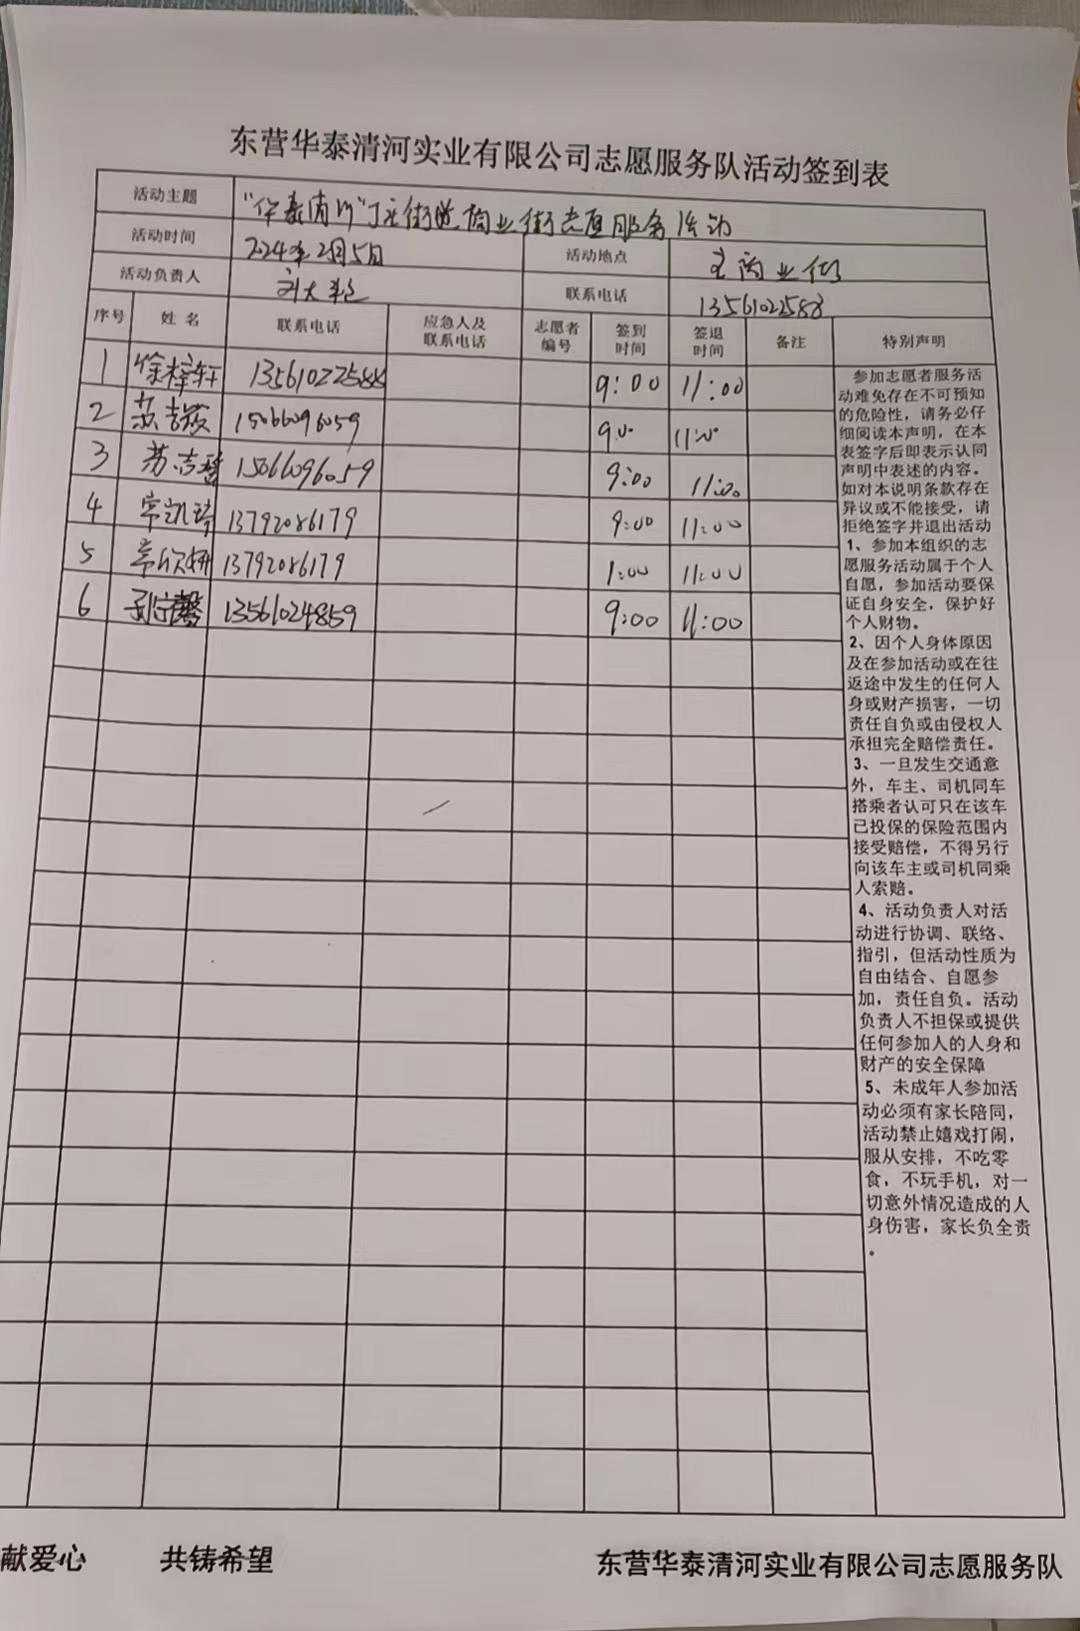 东营华泰清河实业有限公司志愿服务队活动签到表
活动主题 "华泰清河"丁庄街道商业街志愿服务活动
活动时间 2024年2月5日 活动地点 商业街
活动负责人 联系电话 13561022588
序号 姓名 联系电话 应急人及联系电话 志愿者编号 签到时间 签退时间 备注 特别声明
1 徐梓轩 13561022588 9:00 11:00
2 15066096059 9:00 11:00
3 15066096059 9:00 11:00
4 常凯琦 13792086179 9:00 11:00
5 常欣妍 13792086179 1:00 11:00
6 孙宁馨 13561024859 9:00 11:00
参加志愿者服务活
动难免存在不可预知
的危险性，请务必仔
细阅读本声明，在本
表签字后即表示认同
声明中表述的内容。
如对本说明条款存在
异议或不能接受，请
拒绝签字并退出活动
1、参加本组织的志
愿服务活动属于个人
自愿，参加活动要保
证自身安全，保护好
个人财物。
2、因个人身体原因
及在参加活动或在往
返途中发生的任何人
身或财产损害，一切
责任自负或由侵权人
承担完全赔偿责任。
3、一旦发生交通意
外，车主、司机同车
搭乘者认可只在该车
已投保的保险范围内
接受赔偿，不得另行
向该车主或司机同乘
人索赔。
4、活动负责人对活
动进行协调、联络、
指引，但活动性质为
自由结合、自愿参
加，责任自负。活动
负责人不担保或提供
任何参加人的人身和
财产的安全保障
5、未成年人参加活
动必须有家长陪同，
活动禁止嬉戏打闹，
服从安排，不吃零
食，不玩手机，对一
切意外情况造成的人
身伤害，家长负全责
。
献爱心 共铸希望 东营华泰清河实业有限公司志愿服务队